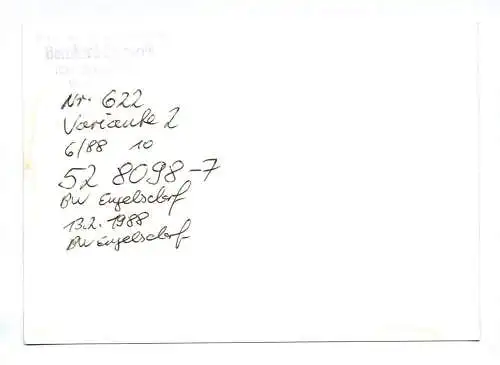 Nr. 622
Variante 2
6/88 10
52 8098-7
BW Engelsdorf
13.2.1988
BW Engelsdorf